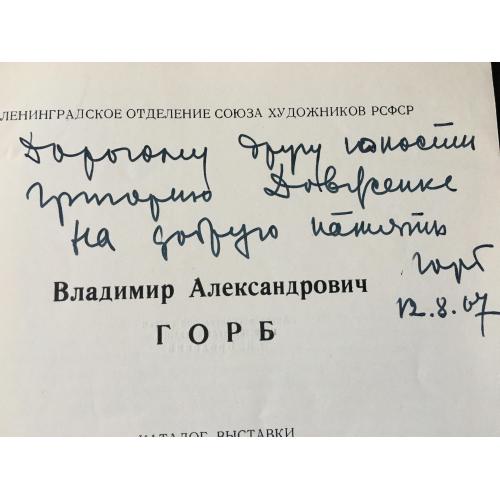 ЛЕНИНГРАДСКОЕ ОТДЕЛЕНИЕ СОЮЗА ХУДОЖНИКОВ РСФСР
Дорогому другу юности
Григорию Довженке
на добрую память
Горб
12.8.67
Владимир Александрович
ГОРБ
КАТАЛОГ ВЫСТАВКИ